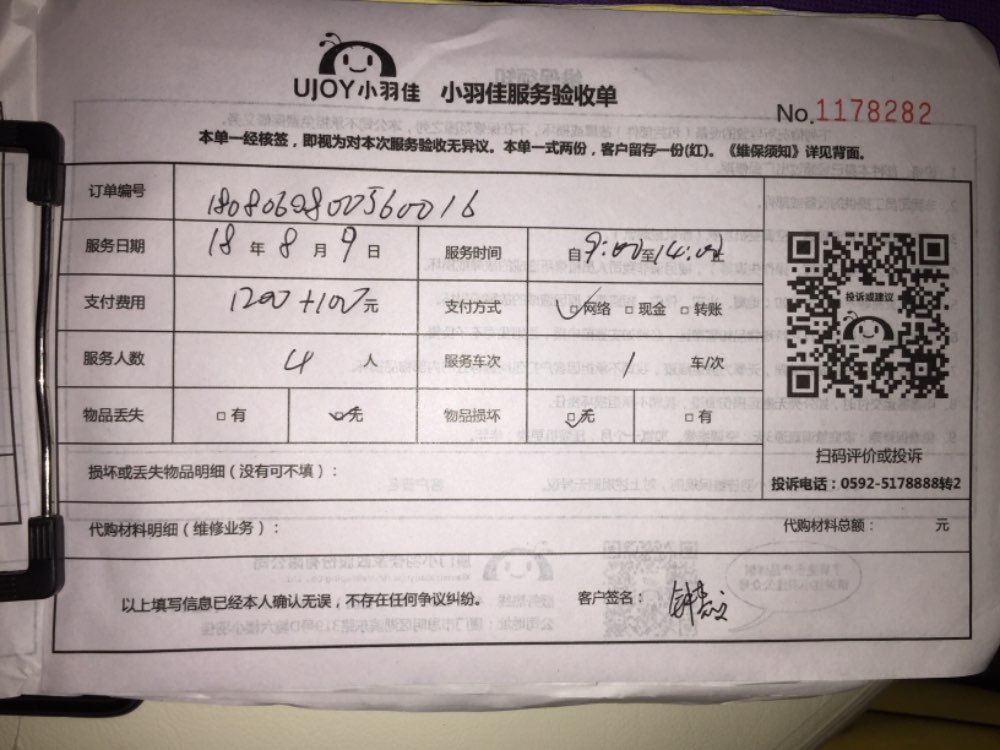 UJOY小羽佳 小羽佳服务验收单
No.1178282
本单一经核签，即视为对本次服务验收无异议。本单一式两份，客户留存一份(红)。《维保须知》详见背面。
订单编号 1808069800560016
服务日期 18 年 8 月 9 日 服务时间 自9:00至14:00止
支付费用 1200+100元 支付方式 网络 现金 转账
投诉或建议
服务人数 4 人 服务车次 1 车/次
物品丢失 有 无 物品损坏 无 有
扫码评价或投诉
损坏或丢失物品明细（没有可不填）：
投诉电话：0592-5178888转2
代购材料明细（维修业务）： 代购材料总额： 元
以上填写信息已经本人确认无误，不存在任何争议纠纷。 客户签名：